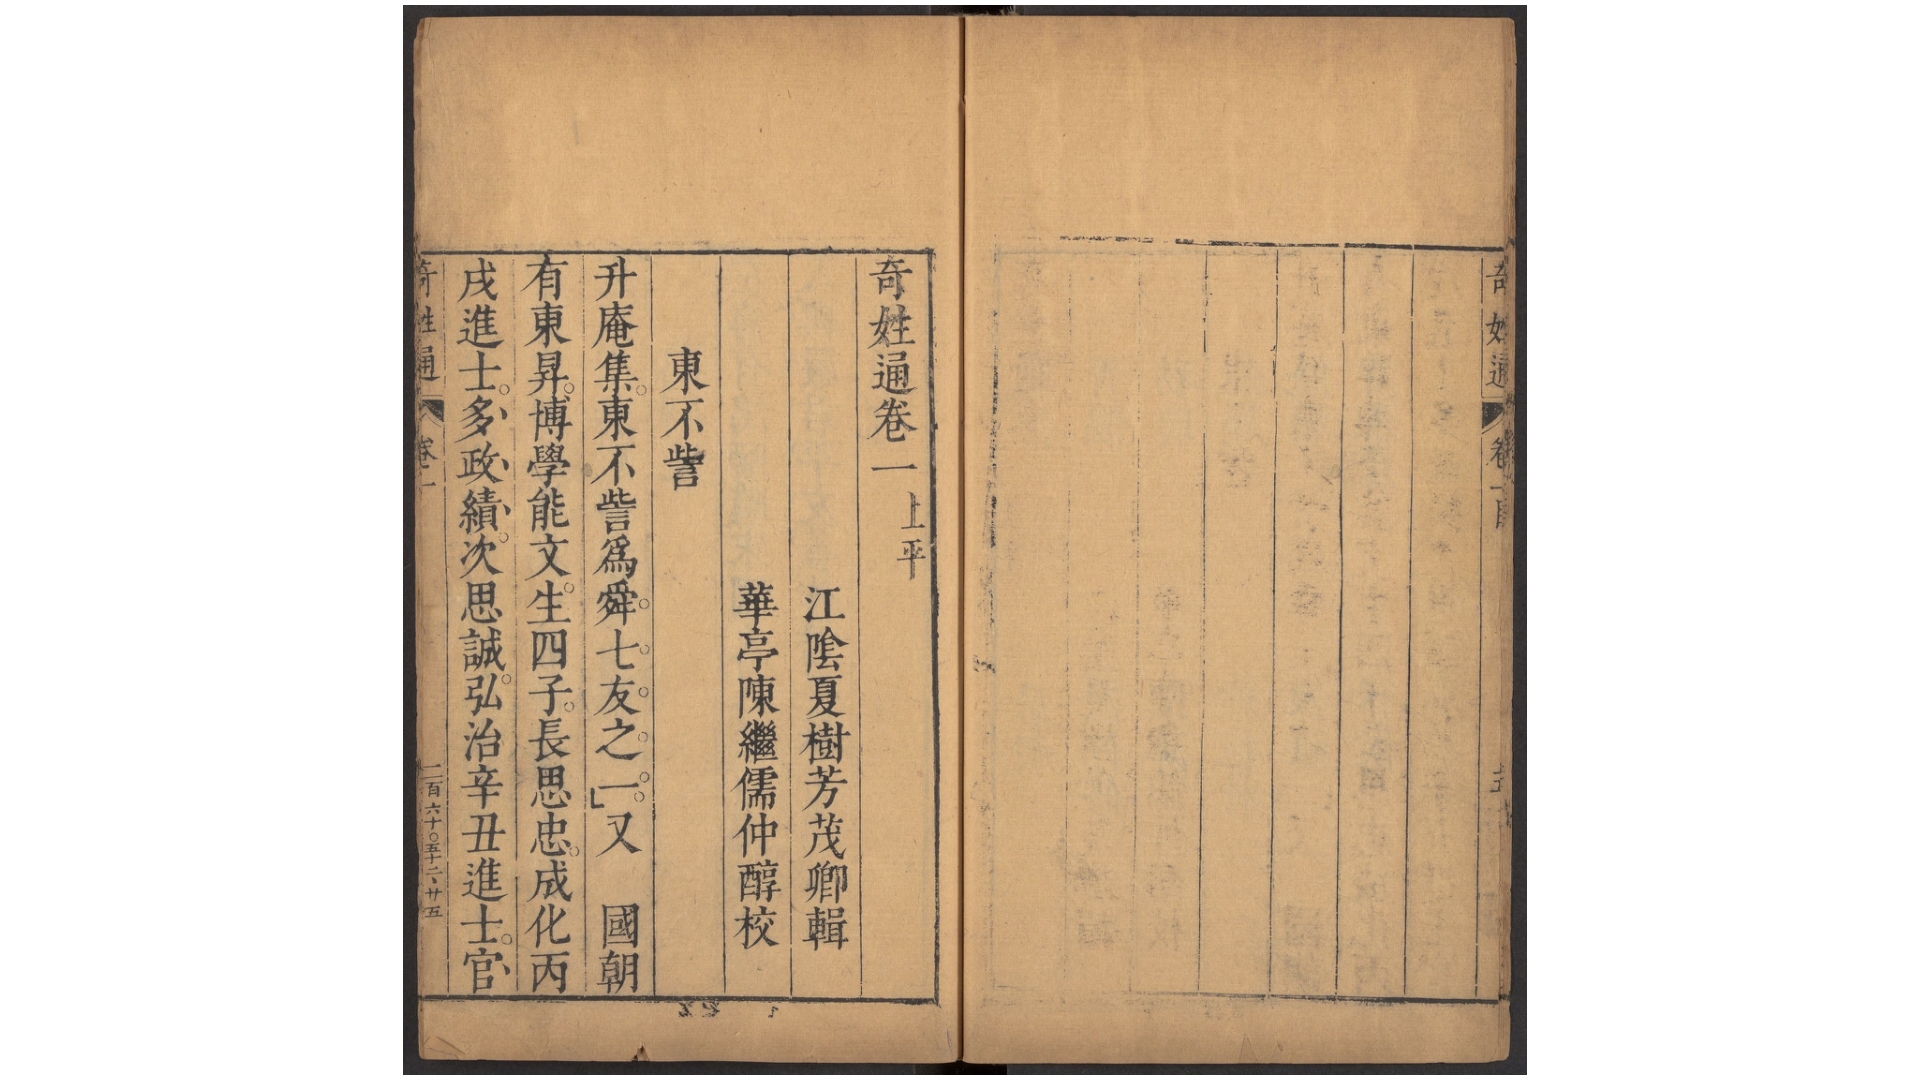 奇姓通
卷一目
奇姓通卷一 上平
江陰夏樹芳茂卿輯
華亭陳繼儒仲醇校
東不訾
升庵集。東不訾爲舜。七。友。之。一。又 國朝
有東昇。博學能文。生四子。長思忠。成化丙
戌進士。多政績。次思誠。弘治辛丑進士。官
奇姓通 卷一
二百六十〇五十二、廿五